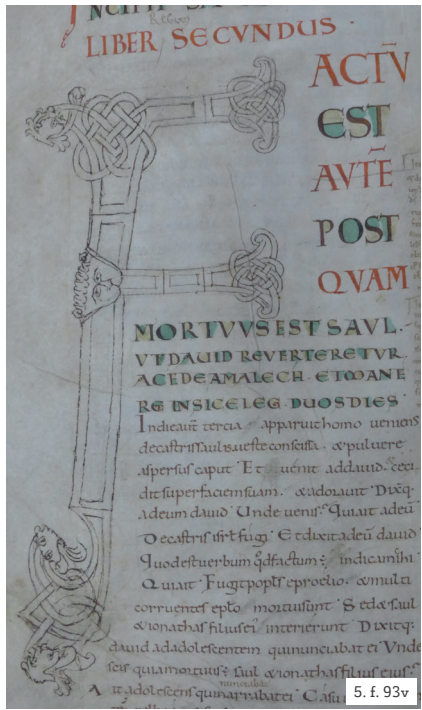 LIBER SECVNDUS
ACTŪ
EST
AVTĒ
POST
QVAM
MORTVVS EST SAVL.
VT DAVID REVERTERETVR.
ACEDE AMALECH. ET MANE
RE IN SICELEG DUOS DIES
In die aut̄ tercia apparuit homo veniens
de castris saul & veste conscissa. & pulvere
aspersus caput Et venit ad david. ceci
dit super faciem suam. & adoravit Dixitq̄
ad eum david Unde venis? Qui ait ad eū
De castris isrl̄ fugi Et dixit ad eū david
Quod est verbum qđ factum ÷ indica mihi
Qui ait Fugit popl̄s e proelio. & multi
corruentes e pplō mortui sunt Sed & saul
& ionathas filius ei' interierunt Dixitq:
david ad adolescentem qui nunciabat ei Unde
scis quia mortuus ÷ saul & ionathas filius eius?
nunciabat
Ait adolescens qui narrabat ei Casu
5. f. 93v